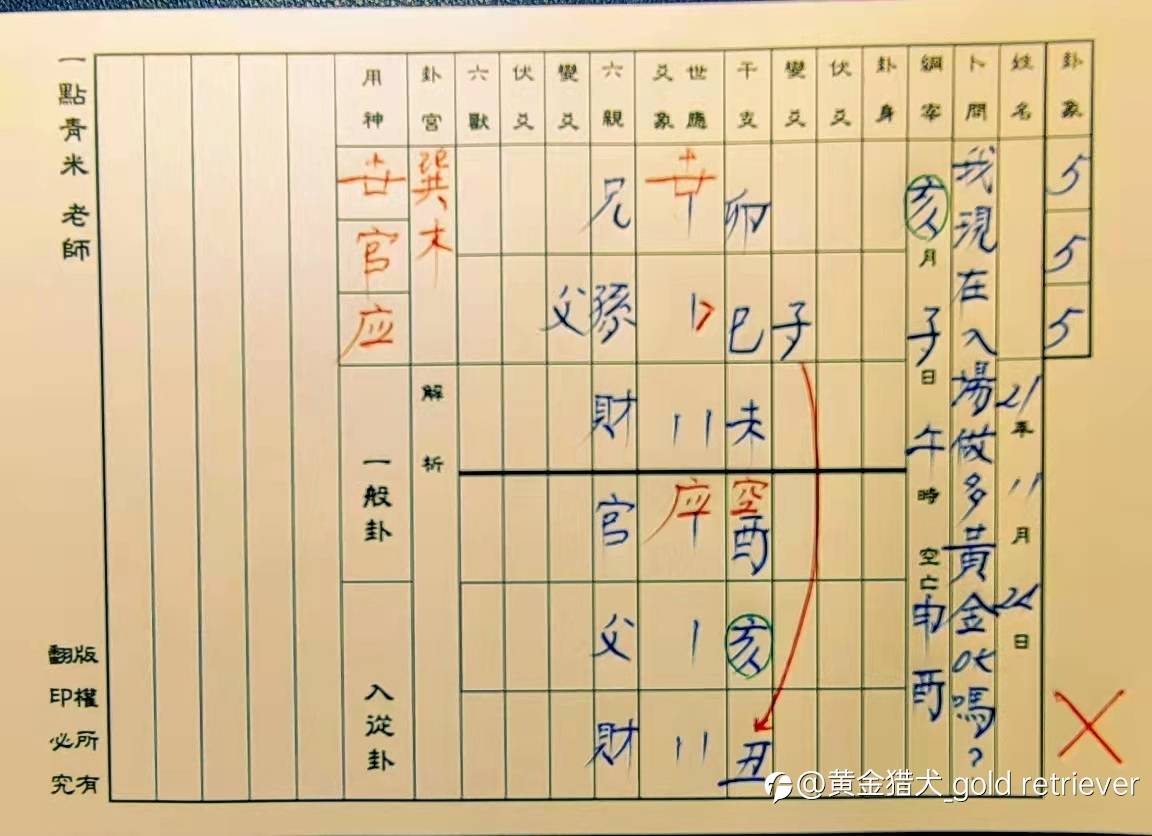 卦象 5 5 5
姓名 21年11月24日
卜問 我現在入場做多黃金ok嗎?
綱宰 亥月子日午時 空亡申酉
卦身
伏爻
變爻 子
干支 卯巳未空酉亥丑
世應 世应
爻象
六親 兄孫財官父財
變爻 父
伏爻
六獸
卦宮 巽木
解析
用神 世官应
一般卦
入從卦
一點青米 老師
版權所有
翻印必究
@黄金猎犬_gold retriever